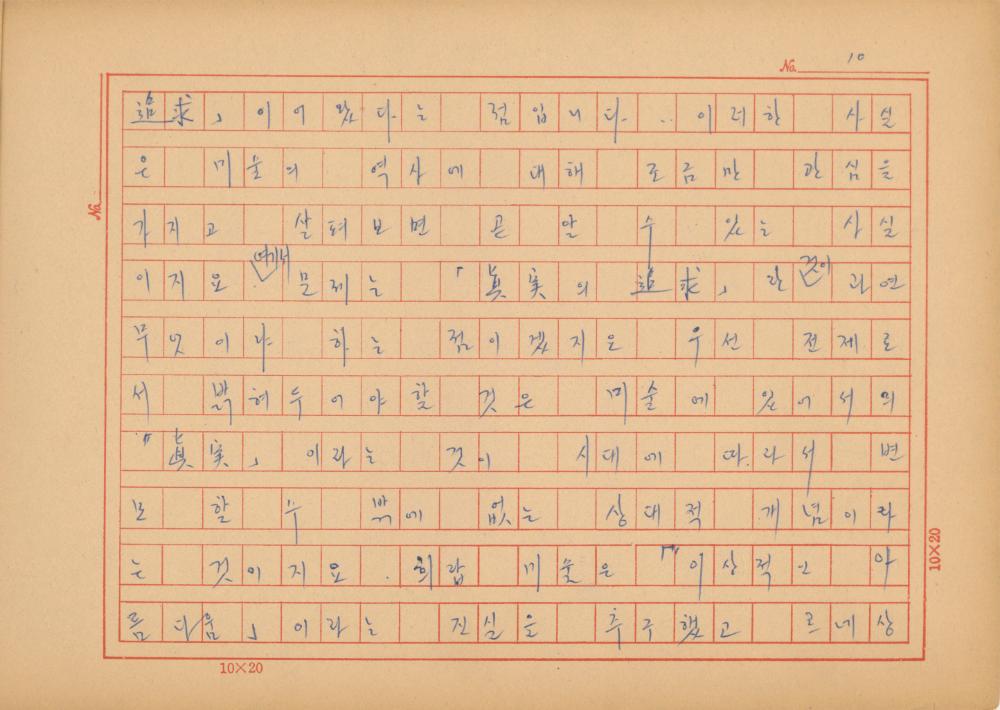 No. 10
追求」이어 왔다는 점입니다. 이러한 사실
은 미술의 역사에 대해 조금만 관심을
가지고 살펴보면 곧 알 수 있는 사실
이지요. 여기서 문제는 「眞実의 追求」란 것이 과연
무엇이냐 하는 점이겠지은 우선 전제로
서 밝혀두어야할 것은 미술에 있어서의
「眞実」이라는 것이 시대에 따라서 변
모할 수 밖에 없는 상대적 개념이라
는 것이지요. 희랍 미술은 「이상적인 아
름다움」이라는 진실을 추구했고 르네상
No.
10×20
10×20